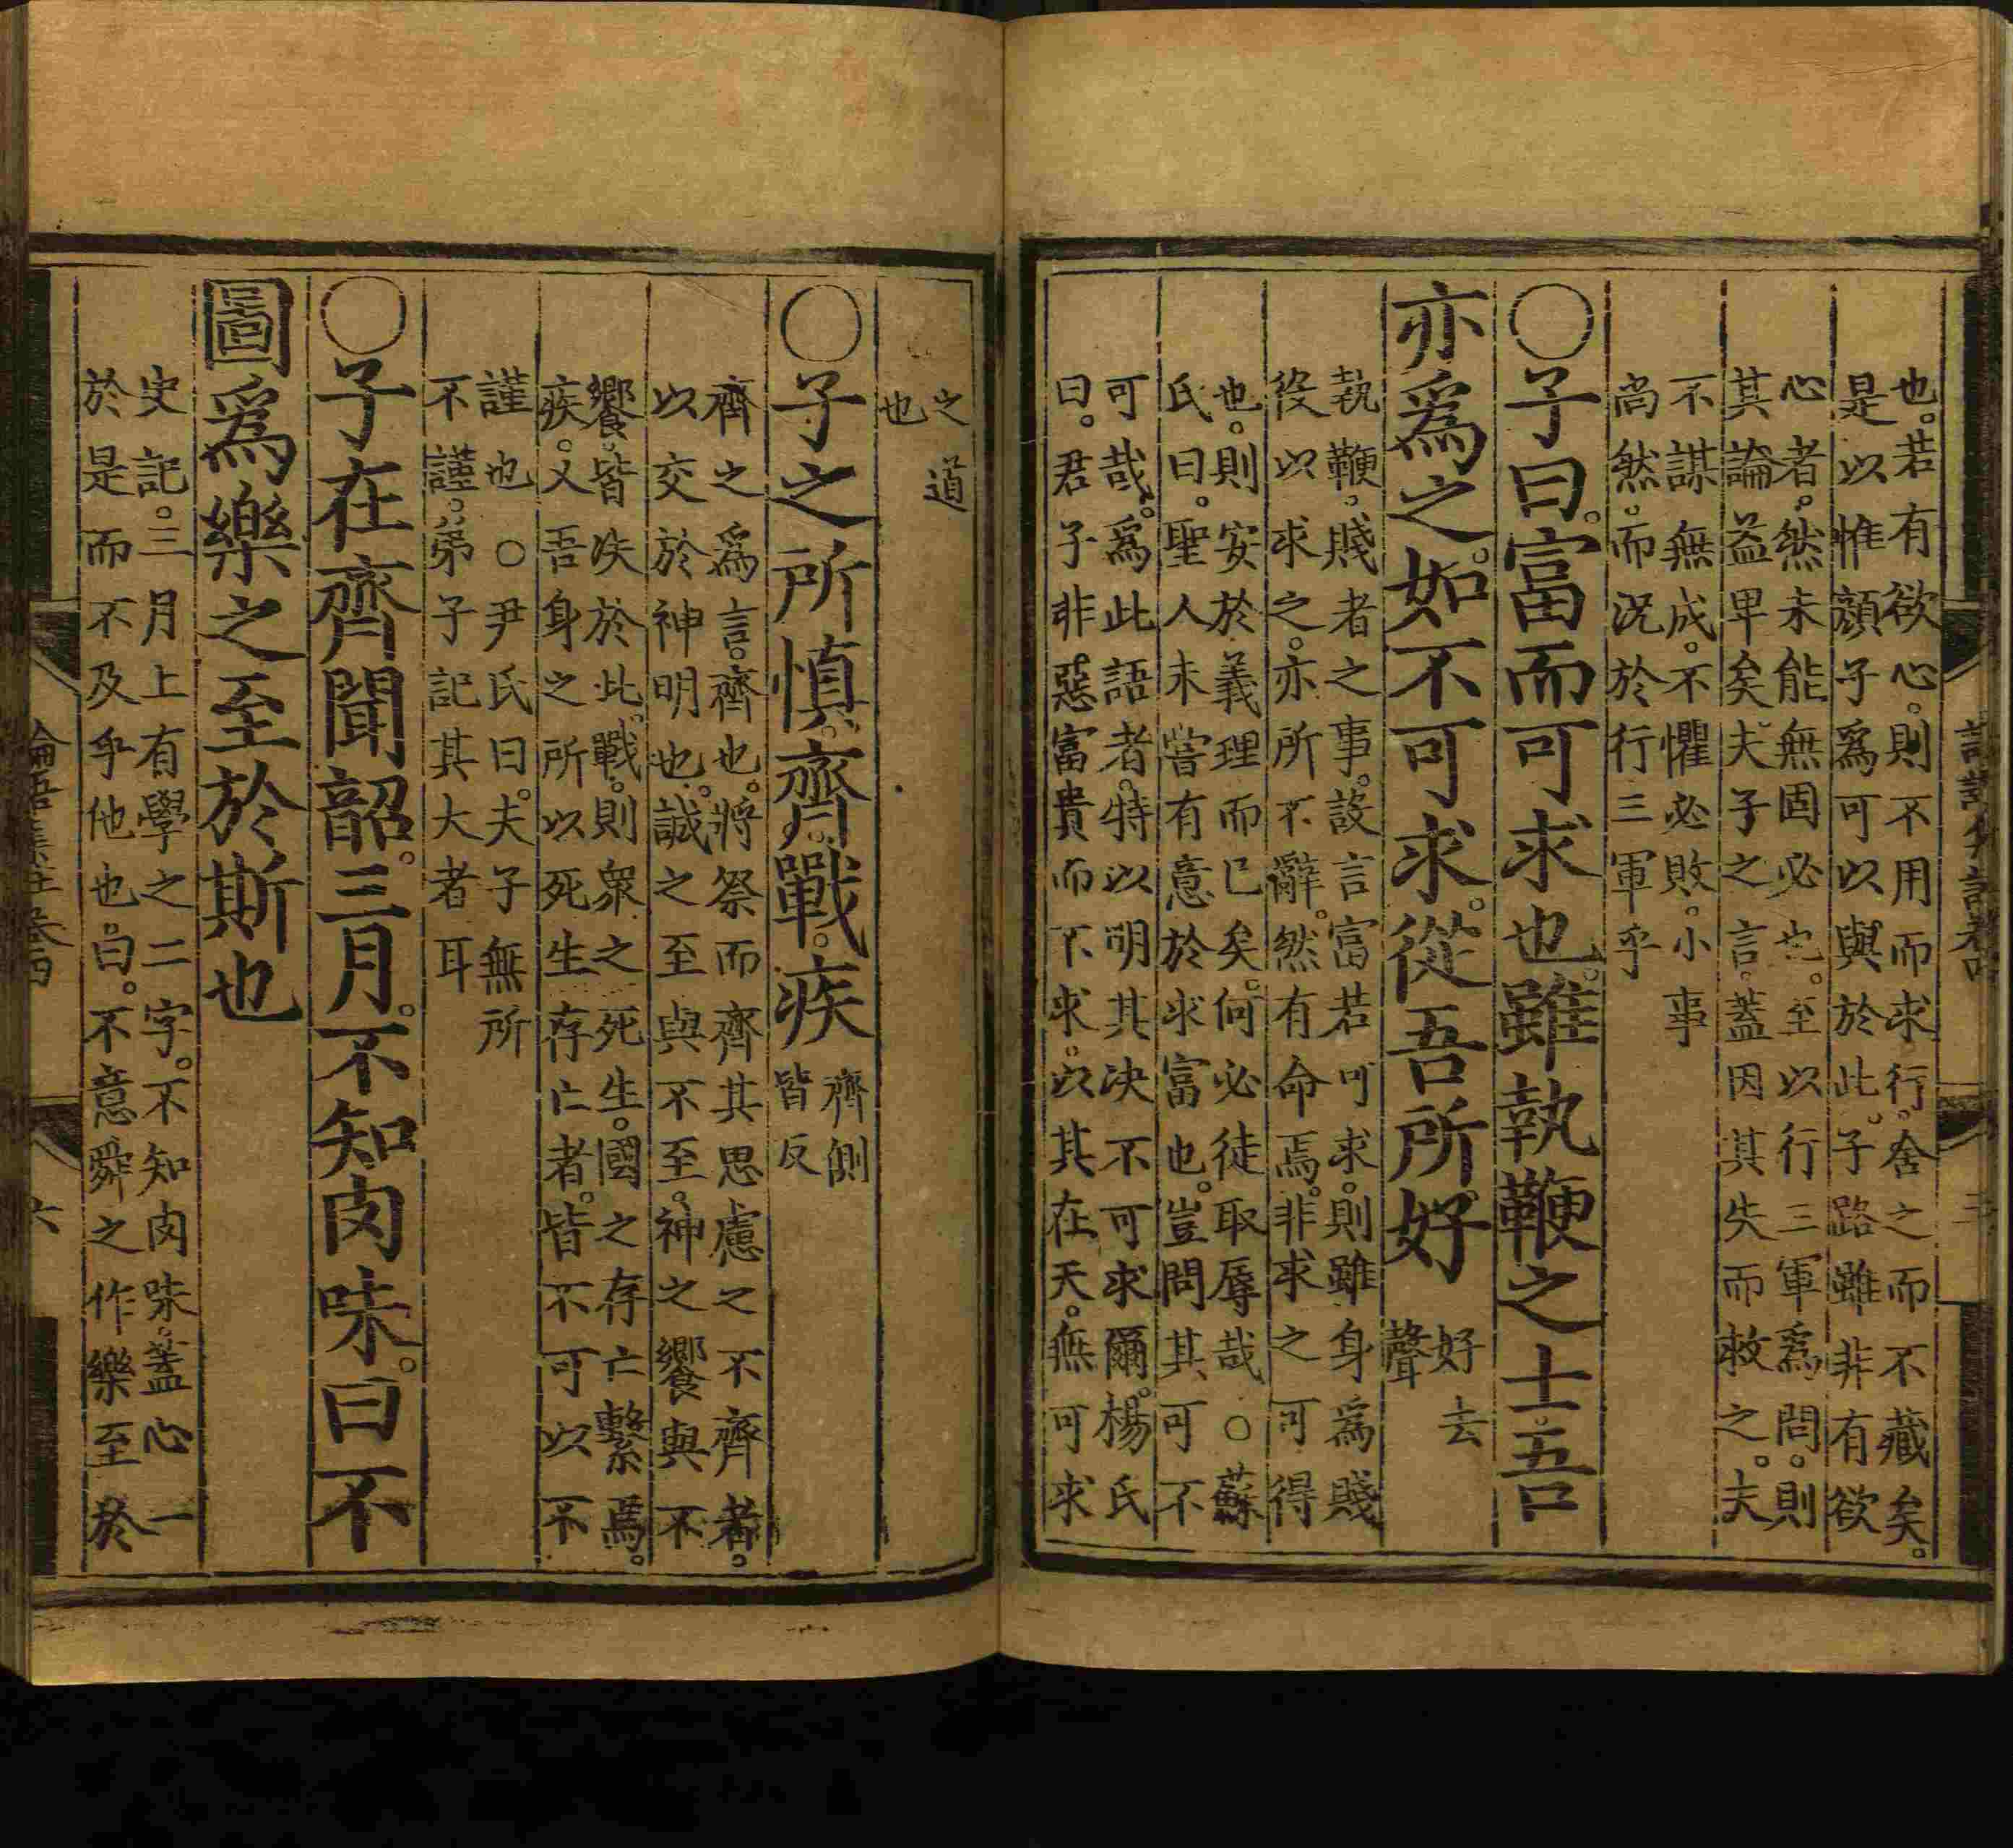 也。若有欲心。則不用而求行。舍之而不藏矣。
是以惟顔子爲可以與於此。子路雖非有欲
心者。然未能無固必也。至以行三軍爲問。則
其論益卑矣。夫子之言。蓋因其失而救之。夫
不謀無成。不懼必敗。小事
尚然。而況於行三軍乎
○子曰。富而可求也。雖執鞭之士。吾
亦爲之。如不可求。從吾所好
好去
聲
執鞭。賤者之事。設言富若可求。則雖身爲賤
役以求之。亦所不辭。然有命焉。非求之可得
也。則安於義理而已矣。何必徒取辱哉○蘇
氏曰。聖人未嘗有意於求富也。豈問其可不
可哉。爲此語者。特以明其决不可求爾。楊氏
曰。君子非惡富貴而不求。以其在天。無可求
之道
也
○子之所慎。齊。戰。疾
齊側
皆反
齊之爲言。齊也。將祭而齊其思慮之不齊者。
以交於神明也。誠之至與不至。神之饗與不
饗。皆决於此。戰。則衆之死生。國之存亡繫焉。
疾。又吾身之所以死生存亡者。皆不可以不
謹也○尹氏曰。夫子無所
不謹。弟子記其大者耳
○子在齊聞韶。三月。不知肉味。曰不
圖爲樂之至於斯也
史記。三月上有學之二字。不知肉味。蓋心一
於是而不及乎他也。曰。不意舜之作樂至於
論語集註卷四
六